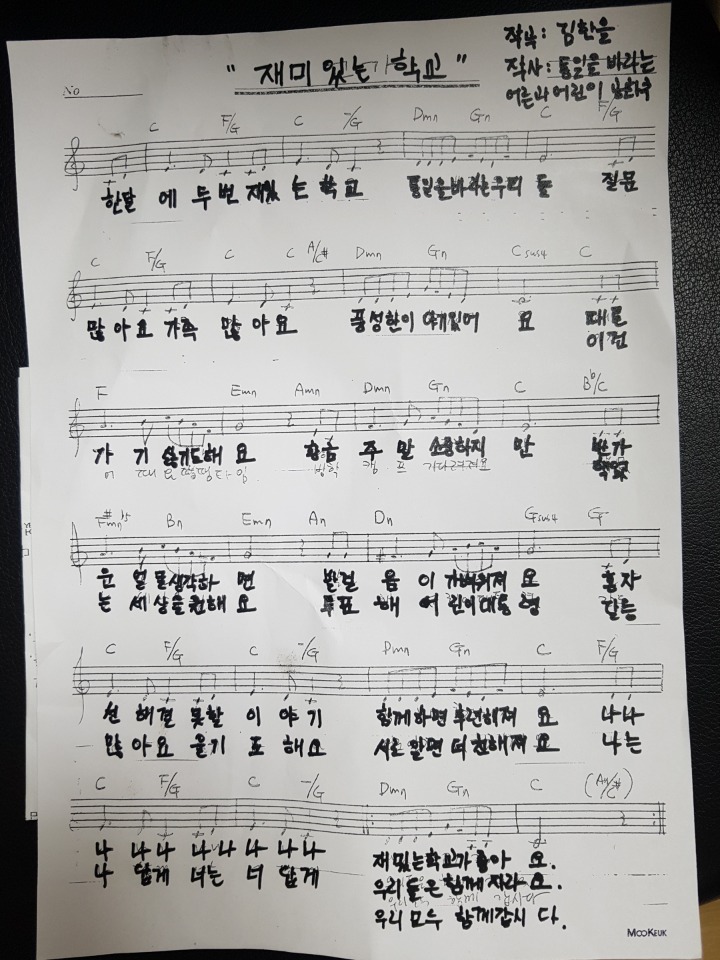 " 재미 있는 학교 "
작곡: 김한을
작사: 통일을 바라는
어른과 어린이
No
C F/G C -/G Dm7 G7 C F/G
한달 에 두 번 재밌 는 학 교 통일을바라는우리 들 질문
C F/G C C A/C# Dm7 G7 Csus4 C
많 아요 가족 많 아 요 풍성한이 야기있어 요 때론
이건
F Em7 Am7 Dm7 G7 C Bb/C
가 기 싫기도해 요 황금 주 말 소중하지 만 반가
F#m7b5 B7 Em7 A7 D7 Gsus4 G
운 얼 굴생각하 면 발걸 음 이 가벼워져 요 혼자
는 세 상을원해 요 투표 해 어 린이대통 령 갈등
C F/G C -/G Dm7 G7 C F/G
선 해결 못할 이 야 기 함께하면 후련해져 요 나나
많 아요 울기 도 해요 서로 알면 더 친해져 요 나는
C F/G C -/G Dm7 G7 C (A7/C#)
나 나 나 나 나 나 나 나 재밌는학교가 좋아 요.
나 답게 너는 너 답게 우리 들은 함께 자라 요.
우리 모두 함께갑시 다.
MOOKEUK